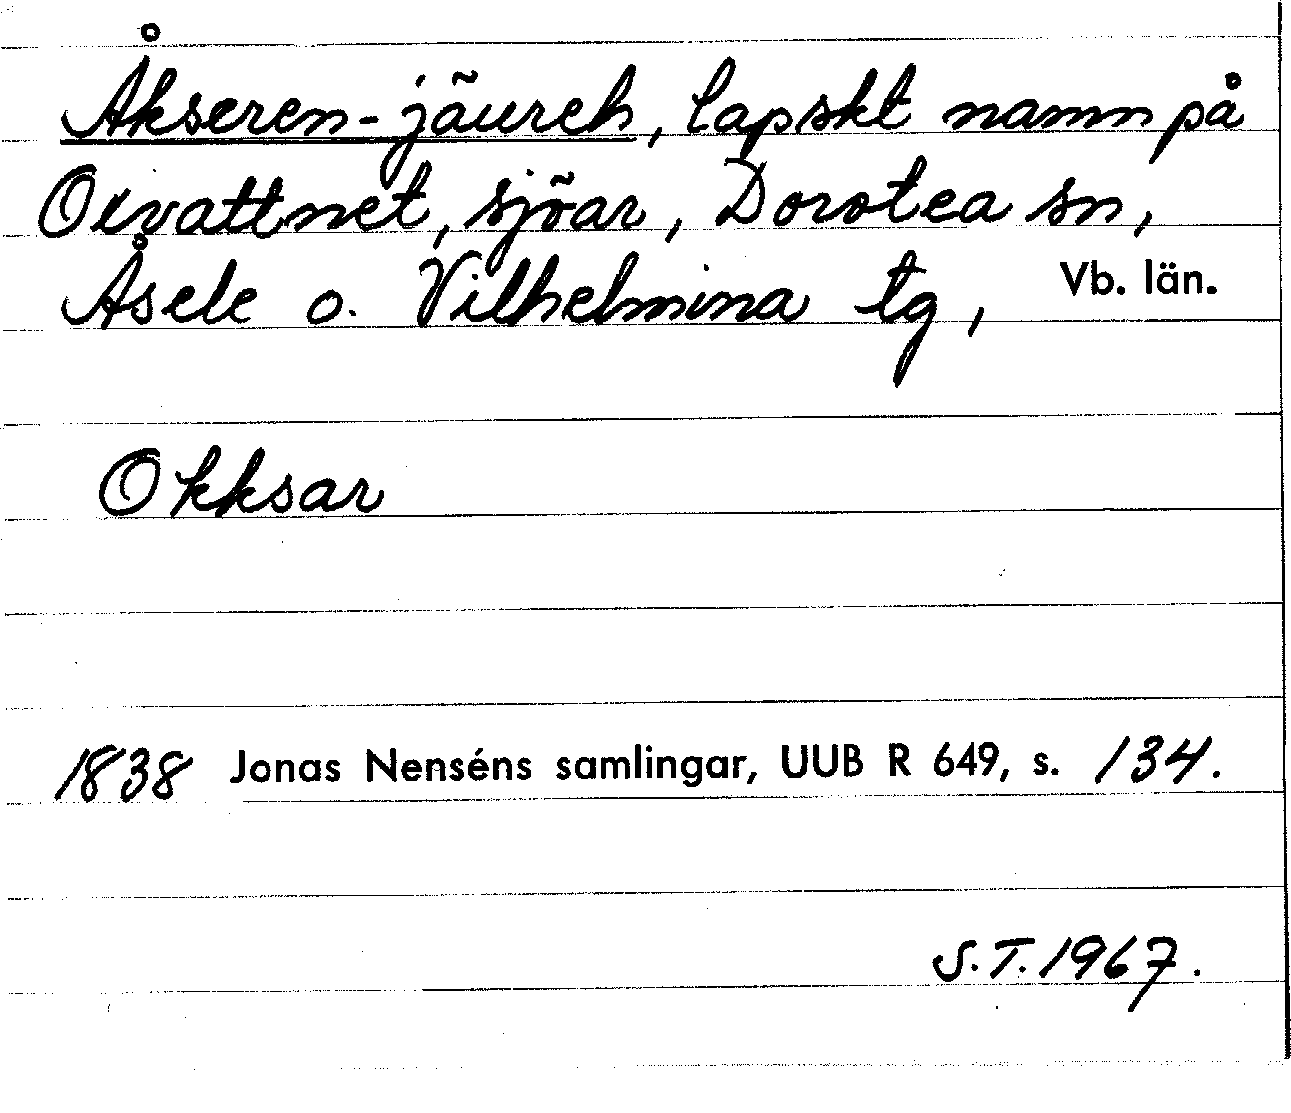 Åkseren-jäureh, lapskt namn på
Oxvattnet, sjöar, Dorotea sn,
Åsele o. Vilhelmina tg, Vb. län.
Okksar
1838 Jonas Nenséns samlingar, UUB R 649, s. 134.
S.T. 1967.